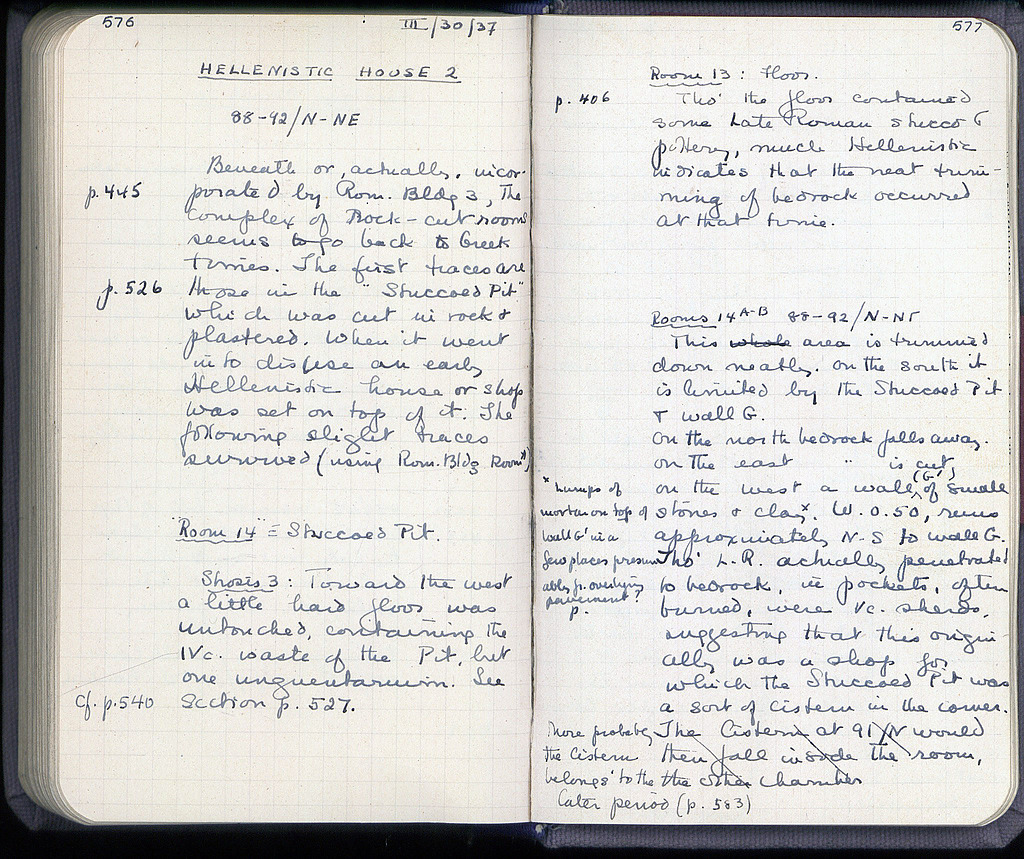 576
III/30/37
HELLENISTIC HOUSE 2
88-92/N-NE
Beneath or, actually, incor-
p. 445 porated by Rom. Bldg 3, The
complex of Rock-cut rooms
seems to go back to Greek
times. The first traces are
p. 526 those in the "Stuccoed Pit"
which was cut in rock &
plastered. When it went
into disuse an early
Hellenistic house or shop
was set on top of it. The
following slight traces
survived (using Rom. Bldg Room
"Room 14" = Stuccoed Pit.
Strosis 3: Toward the west
a little hard floor was
untouched, containing the
IVc. waste of the Pit, but
one unguentarium. See
cf. p. 540 Section p. 527.
577
Room 13: Floor.
p. 406 Tho' the floor contained
some Late Roman stucco &
pottery, much Hellenistic
indicates that the neat trim-
ming of bedrock occurred
at that time.
Rooms 14 A-B 88-92/N-NE
This whole area is trimmed
down neatly. On the south it
is limited by the Stuccoed Pit
& wall G.
On the north bedrock falls away.
on the east " is cut,
on the west a wall (G') of small
stones & clay*. W. 0.50, runs
approximately N-S to wall G.
Tho' L.R. actually penetrated
to bedrock, in pockets, often
burned, were IVc. sherds,
suggesting that this origin-
ally was a shop for
which the Stuccoed Pit was
a sort of cistern in the corner.
The Cistern at 91/N would
then fall inside the room,
the other chamber
* Lumps of
mortar on top of
wall G' in a
few places presum-
ably fr. overlying
pavement?
p.
More probably
the Cistern
belongs to the
later period (p. 583)